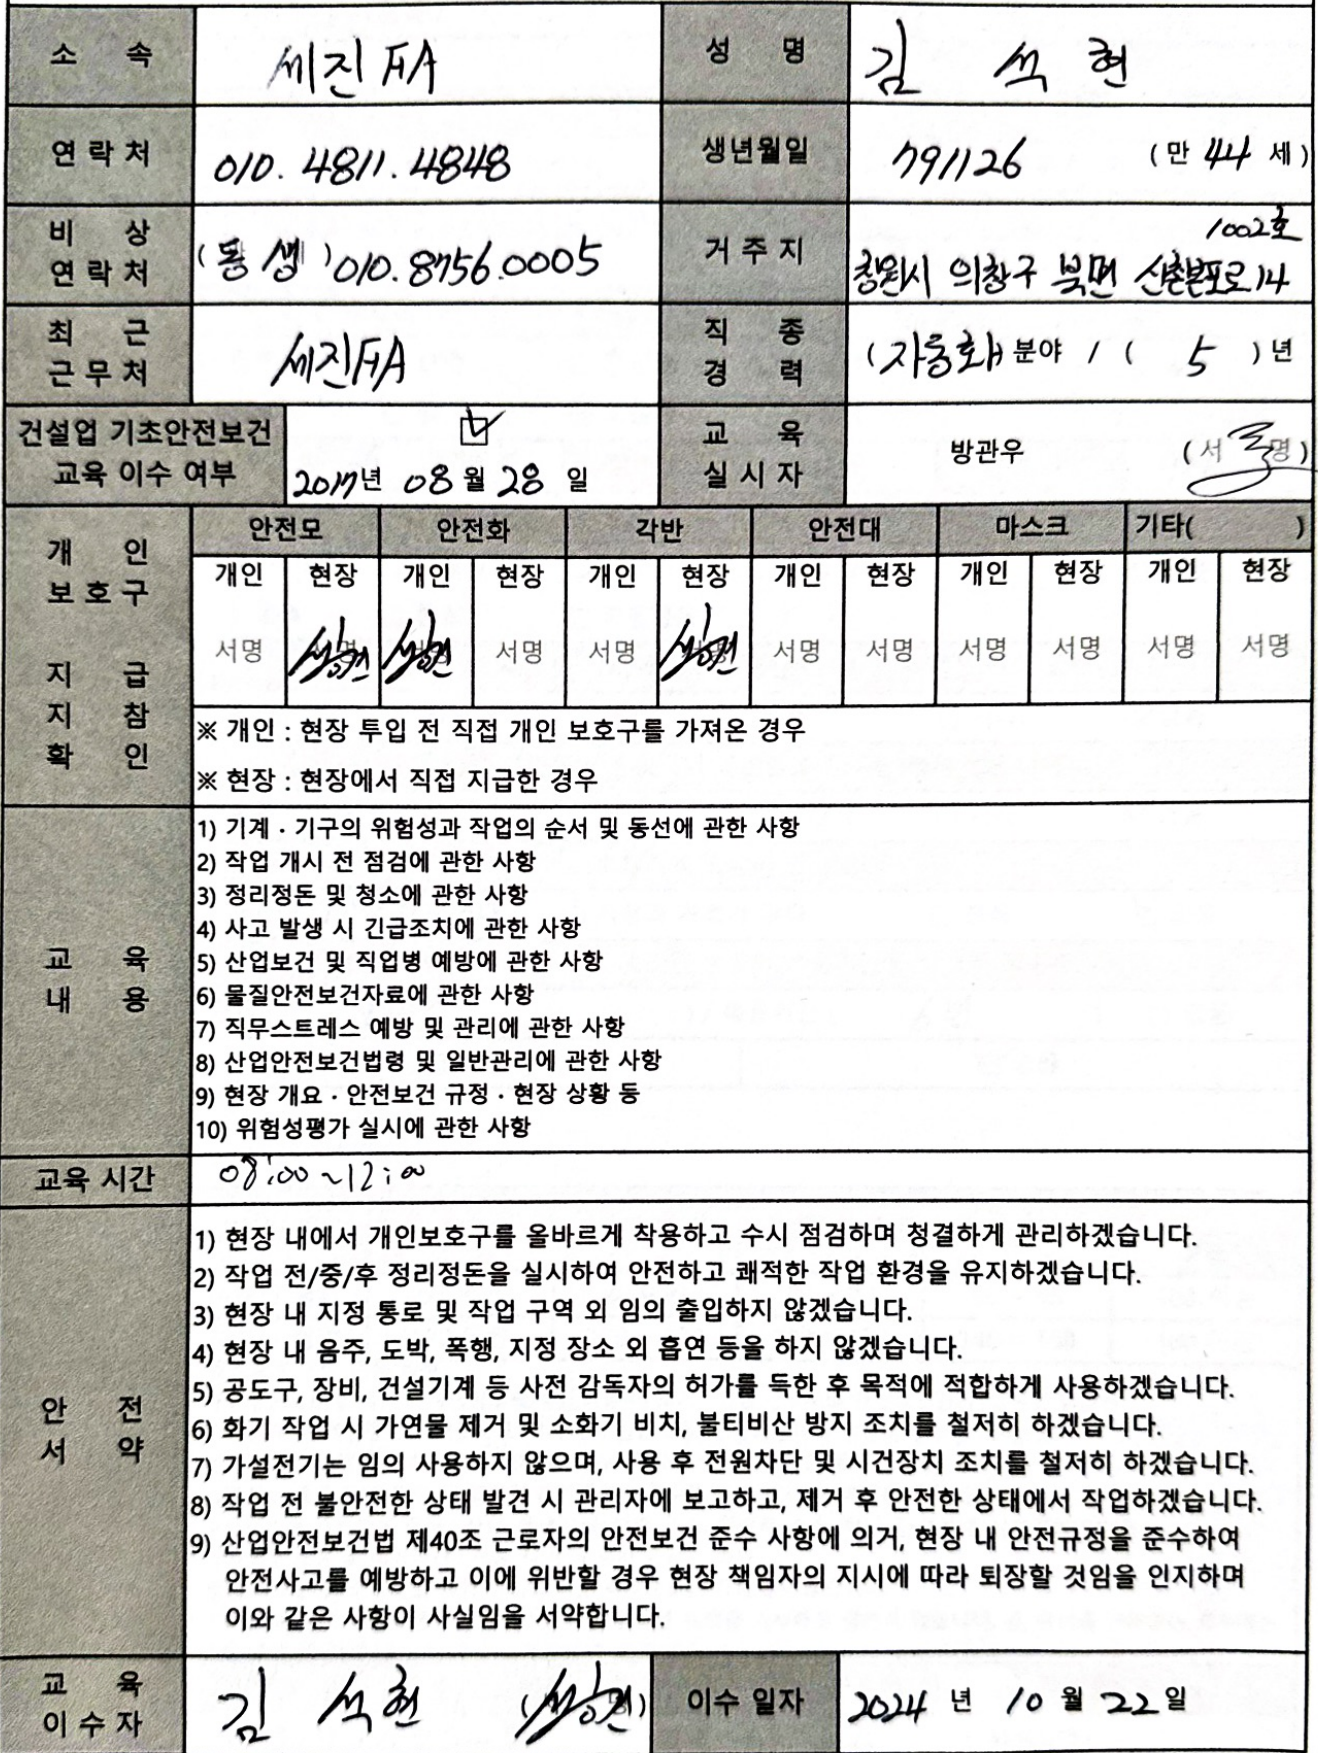 소 속 세진FA 성 명 김 석 현
연락처 010. 4811. 4848 생년월일 791126 (만 44 세)
비 상 연락처 (동생) 010. 8756. 0005 거주지 창원시 의창구 북면 신촌본포로 14 1002호
최 근 근무처 세진FA 직 종 경 력 (자동화) 분야 / ( 5 )년
건설업 기초안전보건 교육 이수 여부 2017년 08월 28일 교 육 실시자 방관우 (서명)
개 인 보호구 지 급 지 참 확 인
안전모 안전화 각반 안전대 마스크 기타( )
개인 현장 개인 현장 개인 현장 개인 현장 개인 현장 개인 현장
서명 서명 서명 서명 서명 서명 서명 서명 서명 서명 서명 서명
※ 개인 : 현장 투입 전 직접 개인 보호구를 가져온 경우
※ 현장 : 현장에서 직접 지급한 경우
교 육 내 용
1) 기계 · 기구의 위험성과 작업의 순서 및 동선에 관한 사항
2) 작업 개시 전 점검에 관한 사항
3) 정리정돈 및 청소에 관한 사항
4) 사고 발생 시 긴급조치에 관한 사항
5) 산업보건 및 직업병 예방에 관한 사항
6) 물질안전보건자료에 관한 사항
7) 직무스트레스 예방 및 관리에 관한 사항
8) 산업안전보건법령 및 일반관리에 관한 사항
9) 현장 개요 · 안전보건 규정 · 현장 상황 등
10) 위험성평가 실시에 관한 사항
교육 시간 08:00 ~ 12:00
안 전 서 약
1) 현장 내에서 개인보호구를 올바르게 착용하고 수시 점검하며 청결하게 관리하겠습니다.
2) 작업 전/중/후 정리정돈을 실시하여 안전하고 쾌적한 작업 환경을 유지하겠습니다.
3) 현장 내 지정 통로 및 작업 구역 외 임의 출입하지 않겠습니다.
4) 현장 내 음주, 도박, 폭행, 지정 장소 외 흡연 등을 하지 않겠습니다.
5) 공도구, 장비, 건설기계 등 사전 감독자의 허가를 득한 후 목적에 적합하게 사용하겠습니다.
6) 화기 작업 시 가연물 제거 및 소화기 비치, 불티비산 방지 조치를 철저히 하겠습니다.
7) 가설전기는 임의 사용하지 않으며, 사용 후 전원차단 및 시건장치 조치를 철저히 하겠습니다.
8) 작업 전 불안전한 상태 발견 시 관리자에 보고하고, 제거 후 안전한 상태에서 작업하겠습니다.
9) 산업안전보건법 제40조 근로자의 안전보건 준수 사항에 의거, 현장 내 안전규정을 준수하여
안전사고를 예방하고 이에 위반할 경우 현장 책임자의 지시에 따라 퇴장할 것임을 인지하며
이와 같은 사항이 사실임을 서약합니다.
교 육 이수자 김 석현 (서명) 이수 일자 2024 년 10 월 22 일